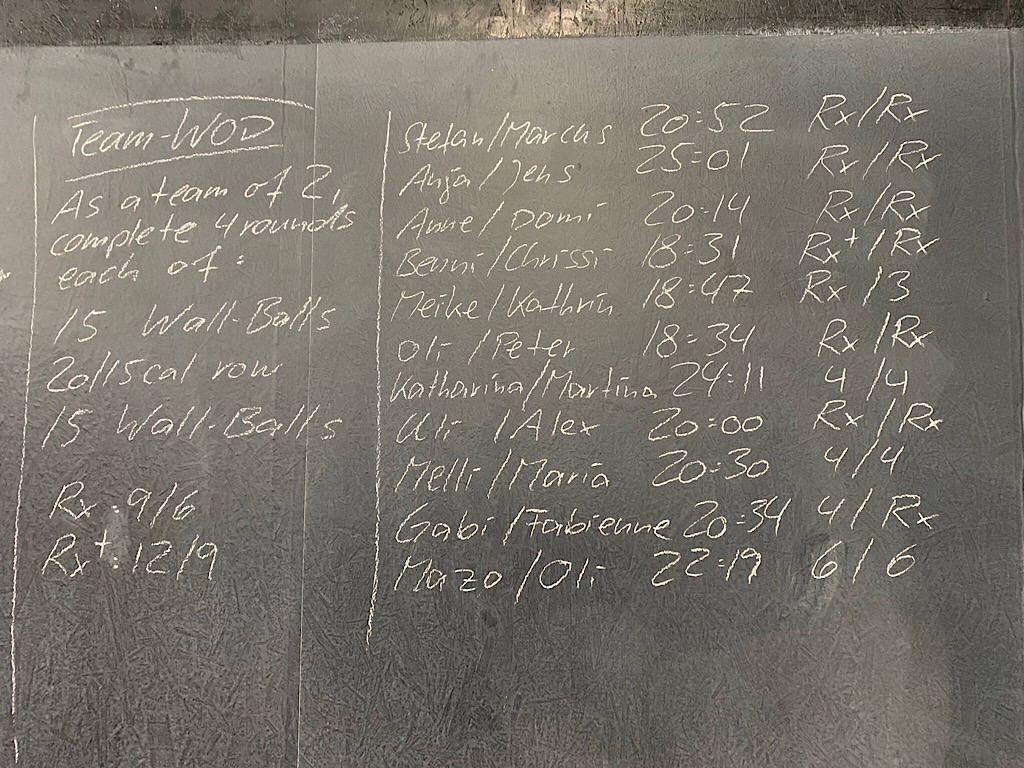 Team-WOD
As a team of 2,
complete 4 rounds
each of:
15 Wall-Balls
20/15 cal row
15 Wall-Balls
Rx: 9/6
Rx+: 12/9
Stefan/Marcus 20:52 Rx/Rx
Anja/Jens 25:01 Rx/Rx
Anne/Domi 20:14 Rx/Rx
Benni/Chrissi 18:31 Rx+/Rx
Meike/Kathrin 18:47 Rx/3
Oli/Peter 18:34 Rx/Rx
Katharina/Martina 24:11 4/4
Uli/Alex 20:00 Rx/Rx
Melli/Maria 20:30 4/4
Gabi/Fabienne 20:34 4/Rx
Mazo/Oli 22:19 6/6